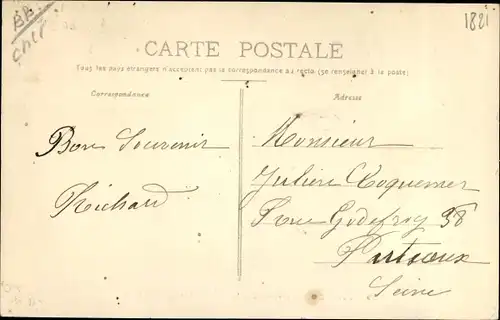 BR
Cher
1821
CARTE POSTALE
Tous les pays étrangers n'acceptent pas la correspondance au recto (se renseigner à la poste)
Correspondance
Adresse
Bon Souvenir
Richard
Monsieur
Julien Coquemer
Rue Godefroy 38
Puteaux
Seine